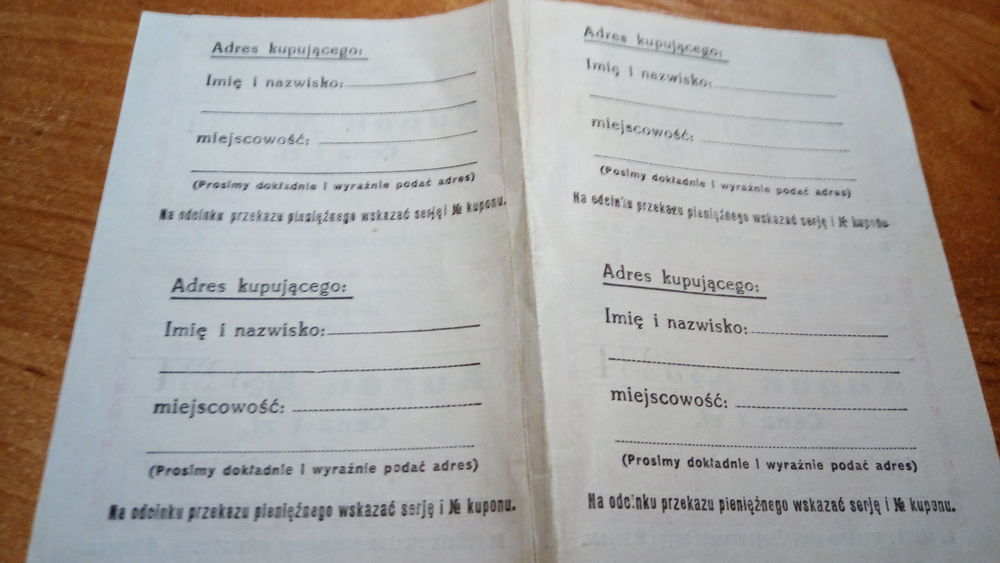 Adres kupującego:
Imię i nazwisko:
miejscowość:
(Prosimy dokładnie i wyraźnie podać adres)
Na odcinku przekazu pieniężnego wskazać serję i № kuponu.
Adres kupującego:
Imię i nazwisko:
miejscowość:
(Posimy dokładnie i wyraźnie podać adres)
Na odcinku przekazu pieniężnego wskazać serję i № kuponu
Adres kupującego:
Imię i nazwisko:
miejscowość:
(Prosimy dokładnie i wyraźnie podać adres)
Na odcinku przekazu pieniężnego wskazać serję i № kuponu.
Adres kupującego:
Imię i nazwisko:
miejscowość:
(Prosimy dokładnie i wyraźnie podać adres)
Na odcinku przekazu pieniężnego wskazać serję i № kuponu.